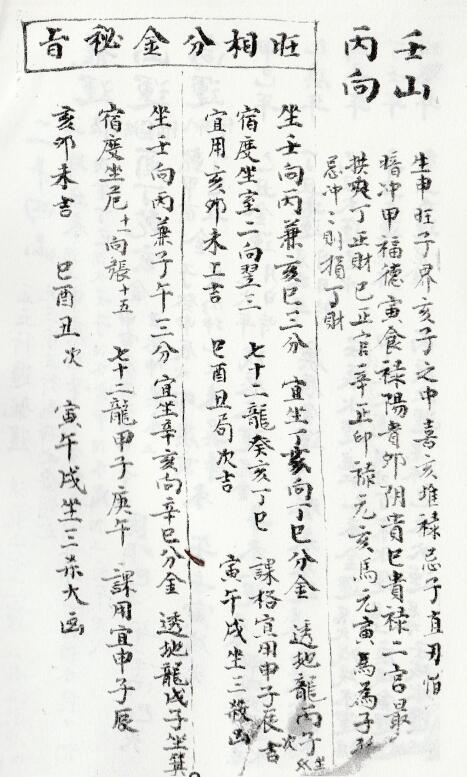 壬山
丙向
生申旺子界亥子之中喜亥堆祿忌子直刃怕
暗冲甲福德寅食祿陽貴卯阴貴巳貴禄二宮最
丁正財巳正官辛正印祿元亥馬元寅為為子
忌冲二則損丁財
旺相分金秘旨
坐壬向丙兼亥巳三分 宜坐丁亥向丁巳分金 透地龍丙子坐
宿度坐室二向翌三 七十二龍癸亥丁巳 課格宜用申子辰次吉
宜用亥卯未上吉 巳酉丑局次吉 寅午戌坐三殺凶
坐壬向丙兼子午三分 宜坐辛亥向辛巳分金 透地龍戊子坐箕
宿度坐危十一向張十五 七十二龍甲子庚午 課用宜申子辰
亥卯未吉 巳酉丑次 寅午戌坐三杀大凶